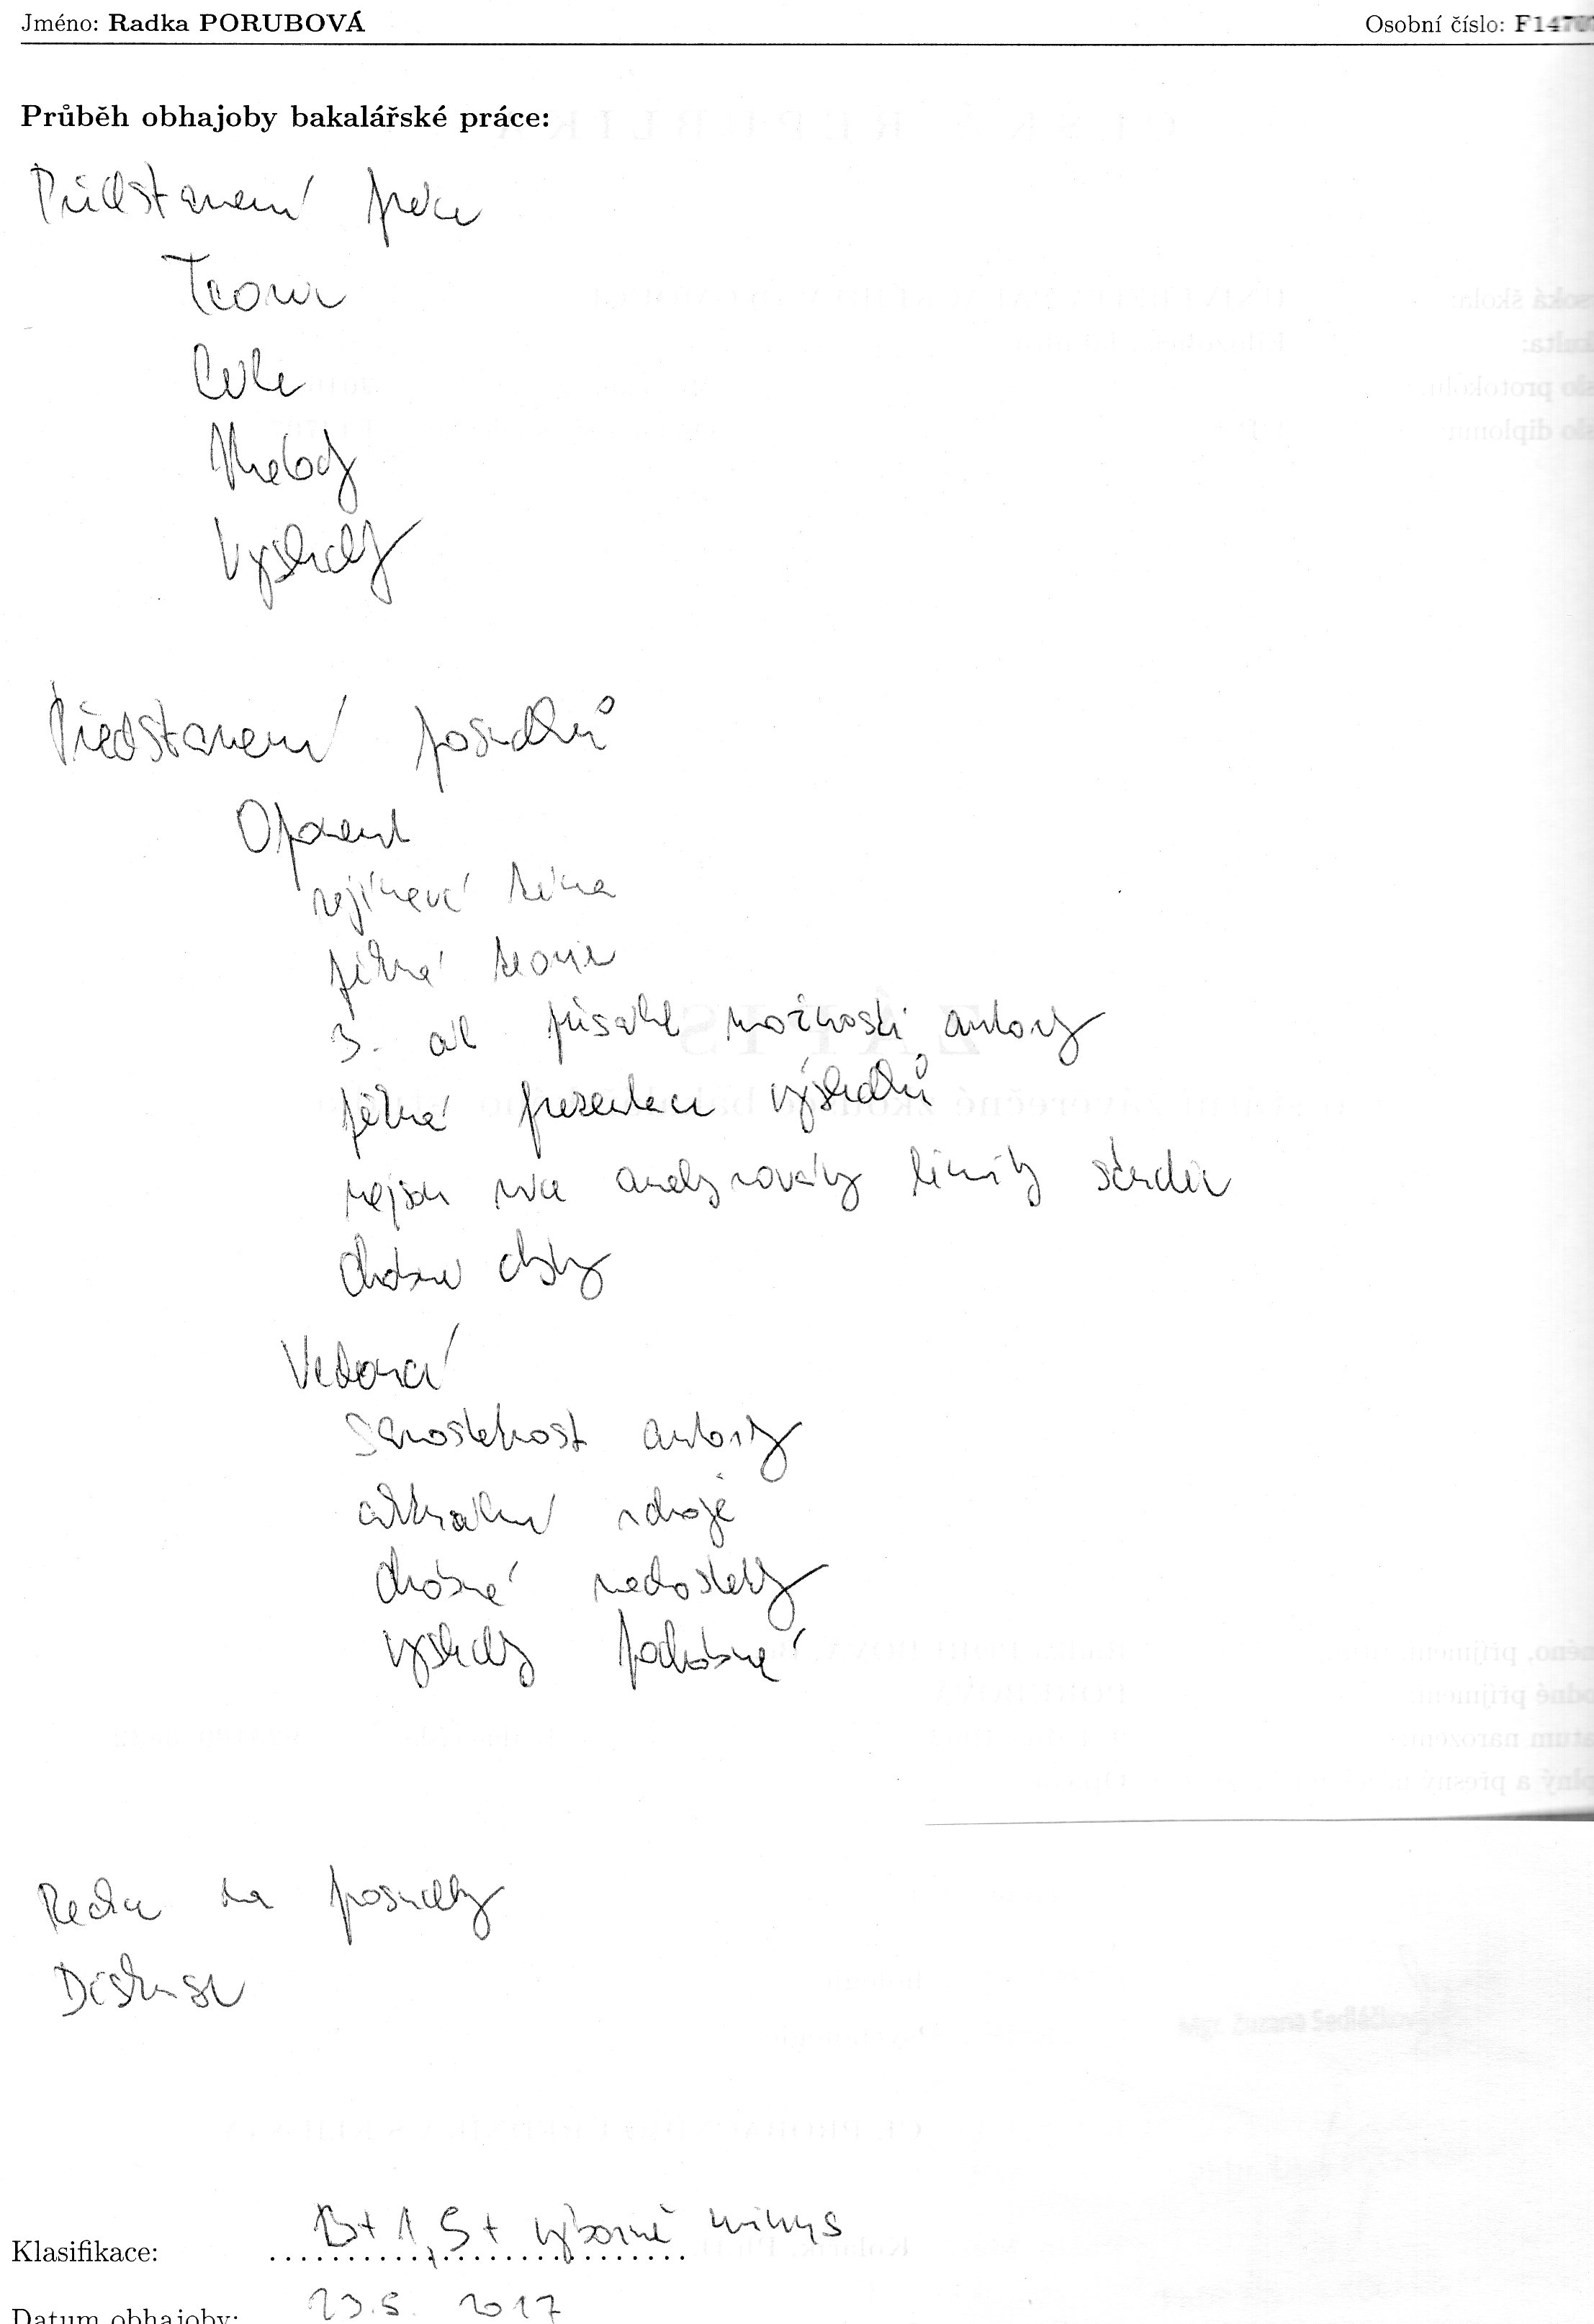 Jméno: Radka PORUBOVÁ Osobní číslo: F1470
Průběh obhajoby bakalářské práce:
Představení práce
Teorie
Cíle
Metody
Výsledky
Představení posudků
Oponent
zajímavé téma
pěkná teorie
3. cíl přesahl možnosti autorky
pěkná prezentace výsledků
nejsou více analyzovány limity studie
drobné chyby
Vedoucí
samostatnost autorky
aktuální zdroje
drobné nedostatky
výsledky podrobné
Reakce na posudky
Diskuse
Klasifikace: B+ 1,5+ výborně minus
Datum obhajoby: 23.5. 2017